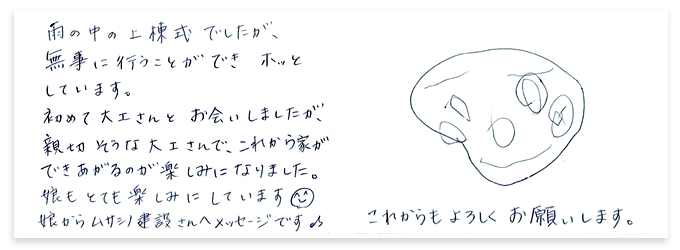 雨の中の上棟式でしたが、
無事に行うことができ ホッと
しています。
初めて大工さんと お会いしましたが、
親切そうな大工さんで、これから家が
できあがるのが楽しみになりました。
娘もとても楽しみにしています
娘からムサシノ建設さんへメッセージです♪
これからもよろしく お願いします。